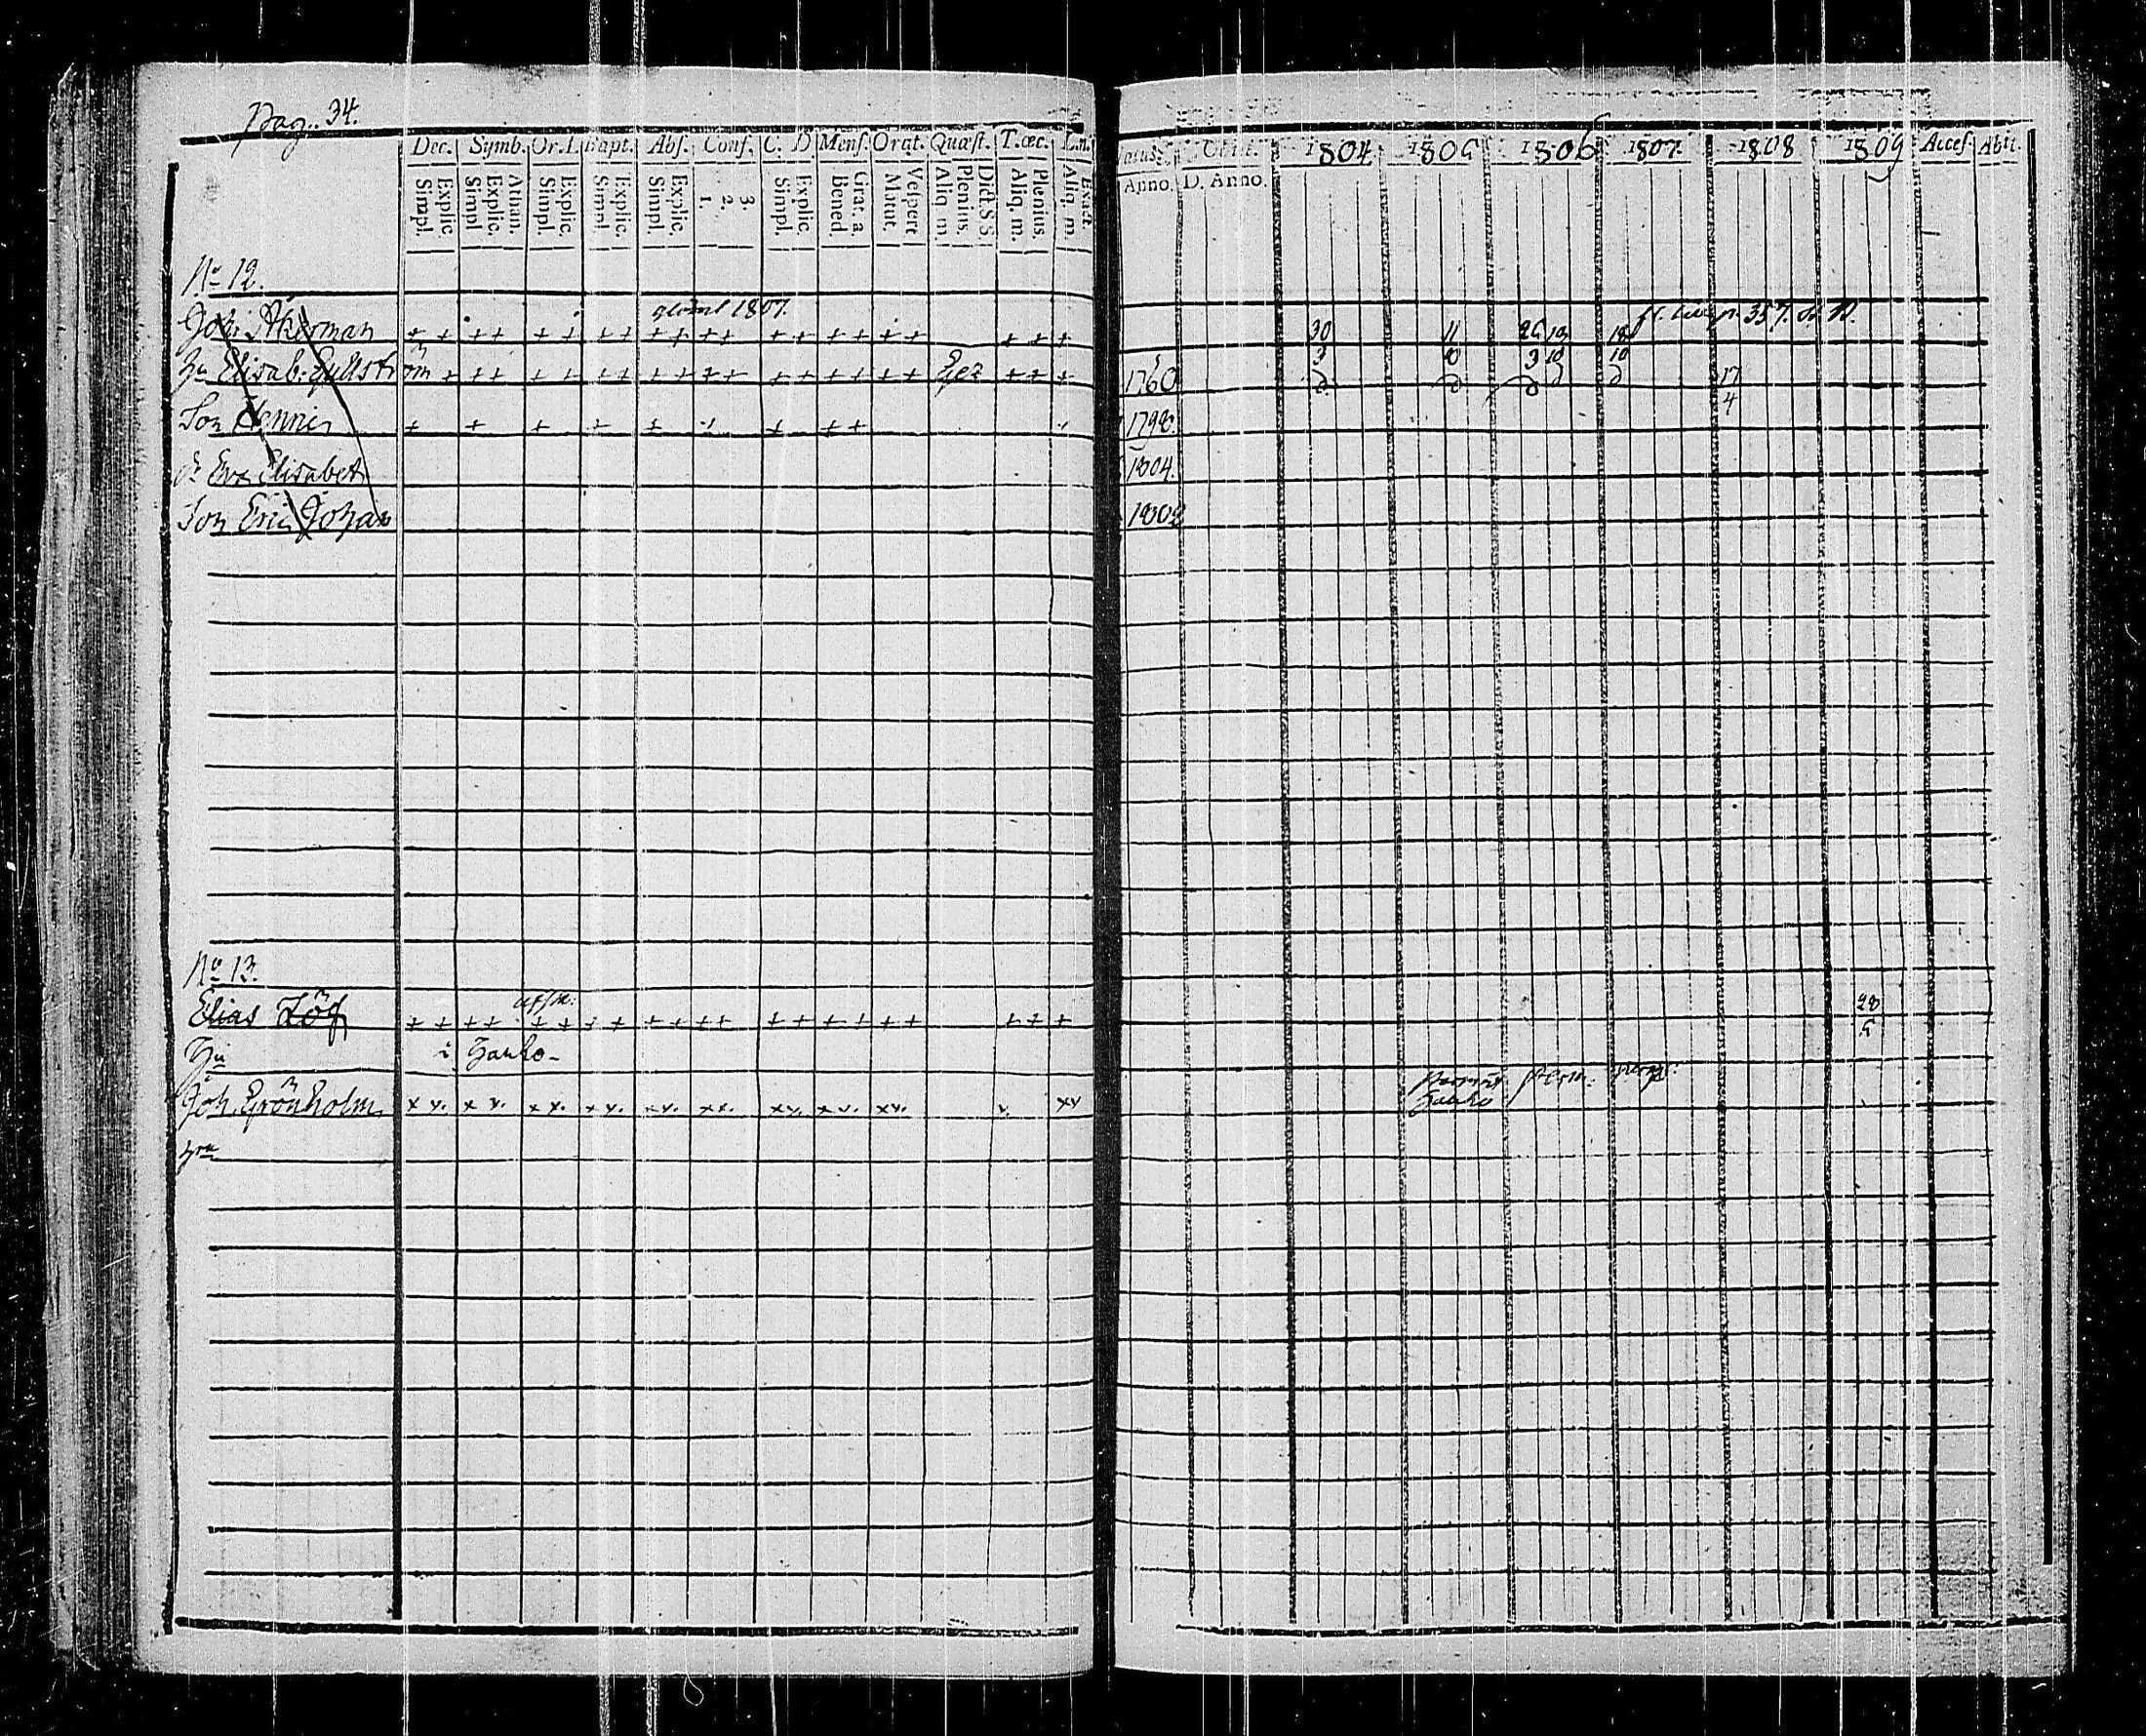 Pag. 34.
Dec. Symb. Or.D. Bapt. Abs. Conf. C. D. Mens. Orat. Quæst. T.œc. L.n.
Simpl. Explic. Simpl Explic. Athan. Simpl. Explic. Simpl. Explic. Simpl. Explic. 1. 2. 3. Simpl. Explic. Bened. Grat. a. Matut. Vespert. Aliq. m. Plenius. Dict.S S. Aliq. m. Plenius. Aliq. m. Exact.
atus. 1804 1805 1806 1807 1808 1809 Acces. Abit.
Anno. D. Anno.
No 12.
Joh: Åkerman + + + + + + + + + + + + + + + + + + + + + 30 11 18
1807. p. 357.
Hu Elisab: Gyllström + + + + + + + + + + + + + + + + + + + + 1760 3 10 3 10 10
17
4
Son Henric + + + + + + + + + 1798.
dr Eva Elisabet 1804.
Son Eric Johan 1802
No 13.
Elias Löf + + + + + + + + + + + + + + + + + + + + + 28
5
Hu i Hanko-
Joh. Grönholm x v. x v. x v. x v. x v. x v. x v. x v. x v. v. x v
Hanko
hru